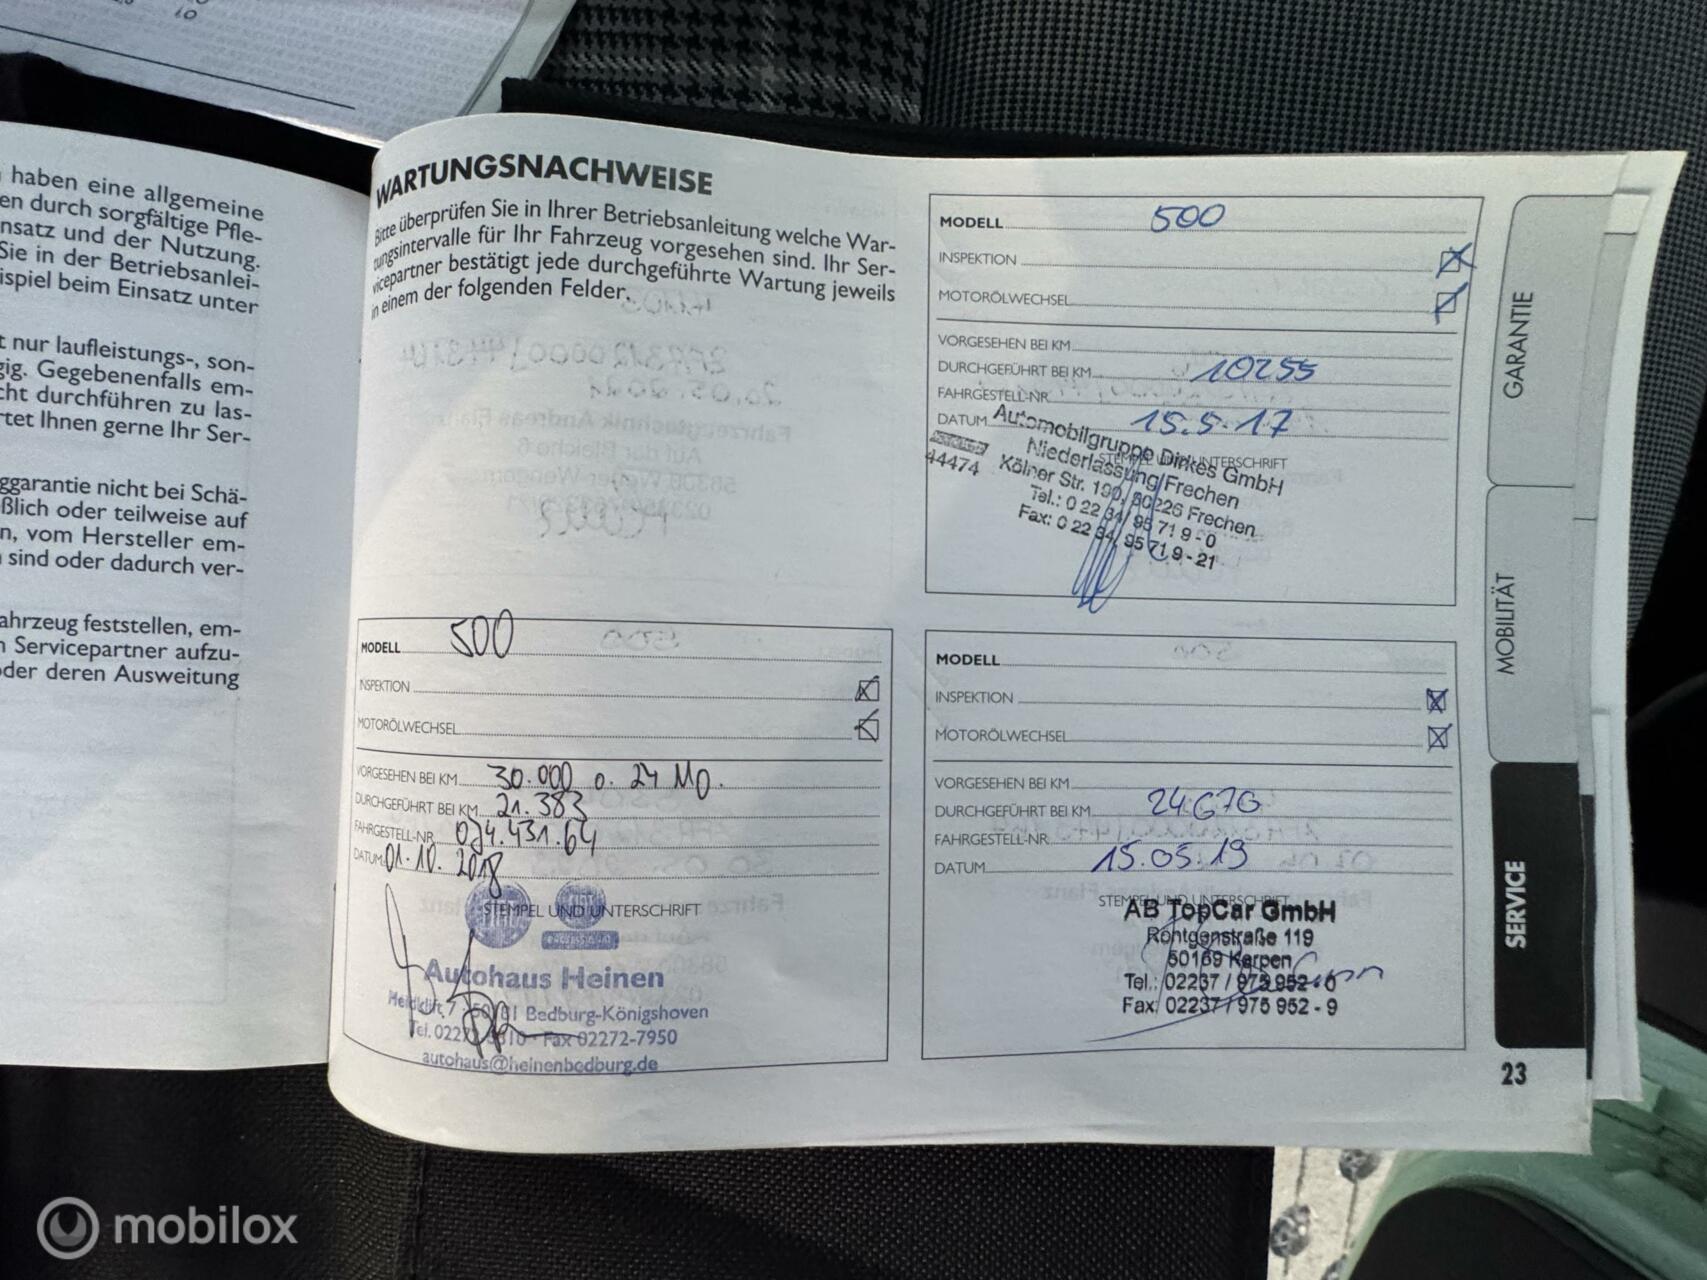 10
haben eine allgemeine
en durch sorgfältige Pfle-
nsatz und der Nutzung.
Sie in der Betriebsanlei-
ispiel beim Einsatz unter
t nur laufleistungs-, son-
gig. Gegebenenfalls em-
cht durchführen zu las-
rtet Ihnen gerne Ihr Ser-
ggarantie nicht bei Schä-
ßlich oder teilweise auf
n, vom Hersteller em-
sind oder dadurch ver-
ahrzeug feststellen, em-
n Servicepartner aufzu-
oder deren Ausweitung
WARTUNGSNACHWEISE
Bitte überprüfen Sie in Ihrer Betriebsanleitung welche War-
tungsintervalle für Ihr Fahrzeug vorgesehen sind. Ihr Ser-
vicepartner bestätigt jede durchgeführte Wartung jeweils
in einem der folgenden Felder.
MODELL 500
INSPEKTION
MOTORÖLWECHSEL
VORGESEHEN BEI KM
DURCHGEFÜHRT BEI KM 10255
FAHRGESTELL-NR.
DATUM 15.5.17
STEMPEL UND UNTERSCHRIFT
Automobilgruppe Dirkes GmbH
Niederlassung Frechen
44474
Kölner Str. 190, 50226 Frechen
Tel.: 0 22 34/ 95 71 9 - 0
Fax: 0 22 34/ 95 71 9 - 21
MODELL 500
INSPEKTION
MOTORÖLWECHSEL
VORGESEHEN BEI KM 30.000 o. 24 MO.
DURCHGEFÜHRT BEI KM 21.383
FAHRGESTELL-NR. 074.431.64
DATUM 01.10.2018
STEMPEL UND UNTERSCHRIFT
Autohaus Heinen
Bedburg-Königshoven
Fax 02272-7950
autohaus@heinenbedburg.de
MODELL
INSPEKTION
MOTORÖLWECHSEL
VORGESEHEN BEI KM
DURCHGEFÜHRT BEI KM 24.670
FAHRGESTELL-NR.
DATUM 15.05.19
STEMPEL UND UNTERSCHRIFT
AB TopCar GmbH
Röntgenstraße 119
50169 Kerpen
Tel.: 02237 / 975 952 - 0
Fax: 02237 / 975 952 - 9
GARANTIE
MOBILITÄT
SERVICE
23
mobilox